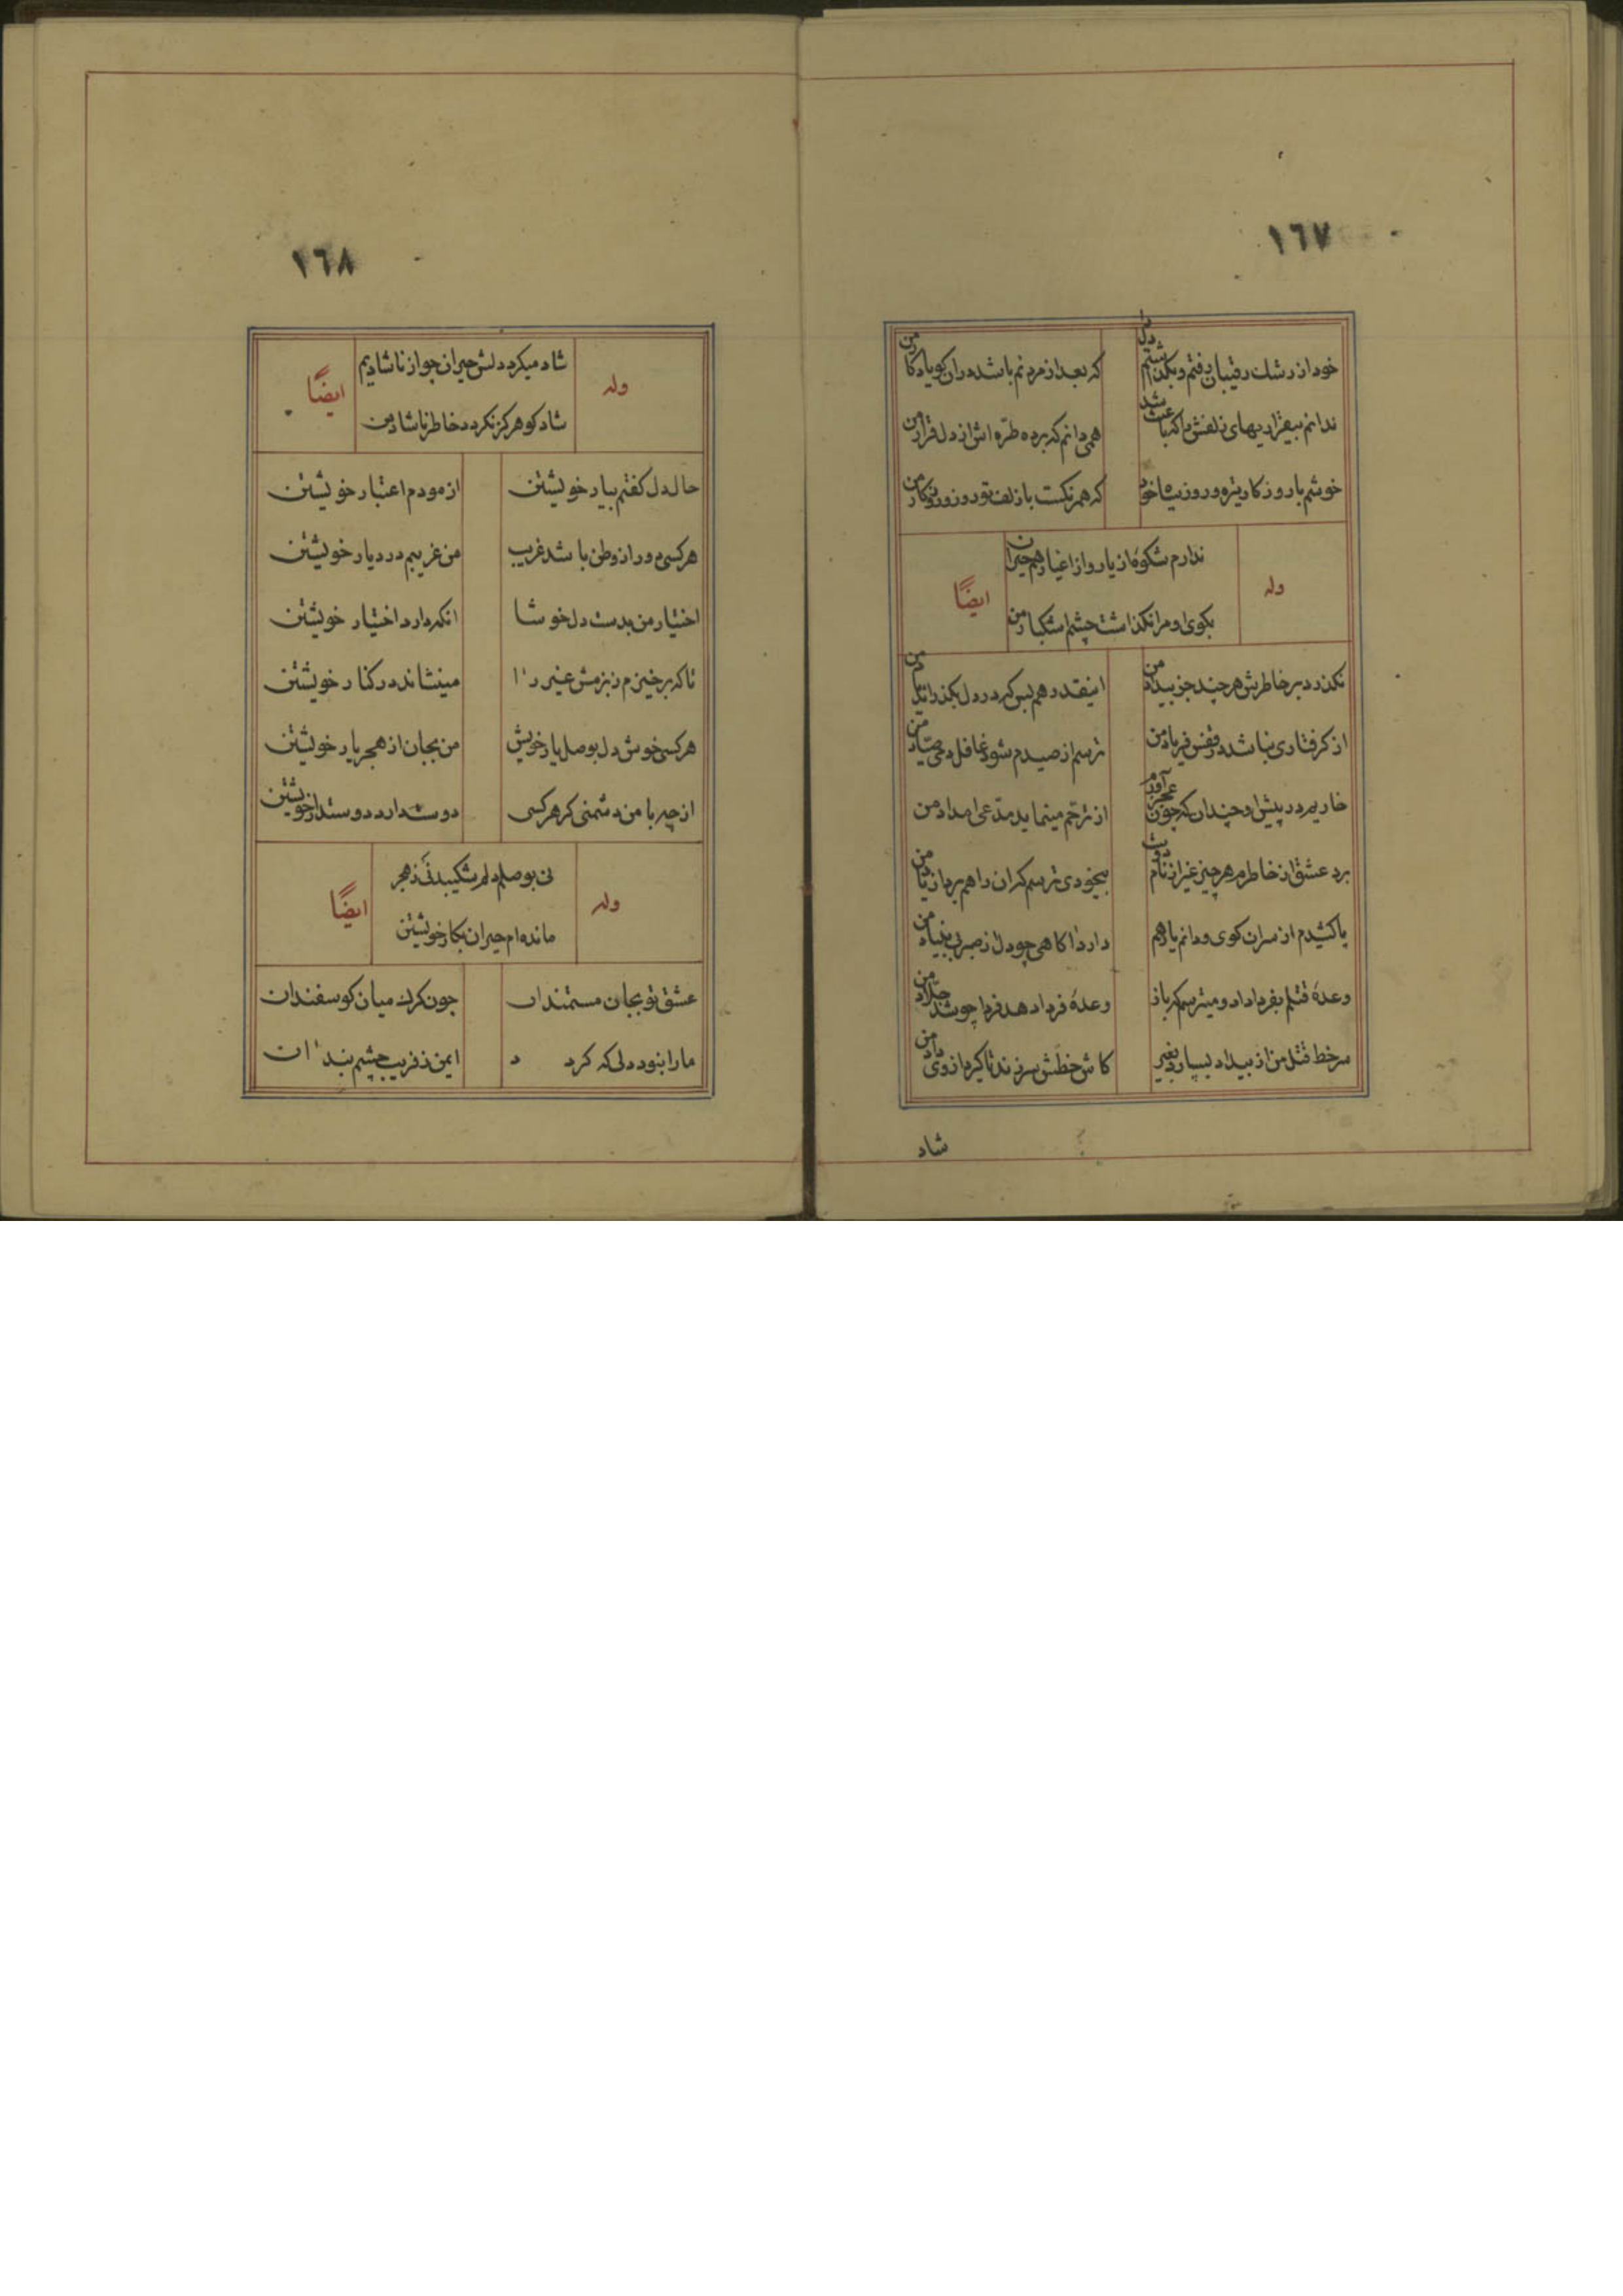 ١٦٧
خود از رشك رقیبان رفتم و بگذاشتم دل را
که بعد از مردنم باشد دران کو یادکار من
ندانم بیقراریهای زلفش را که باعث شد
همی دانم که برده طره اش از دل قرار من
خوشم با روزکار تیره و روز سیاه خود
که همرنکست با زلف تو روز و روزکار من
وله
ندارم شکوهٔ از یار و از اغیار هم حیران
بکوی او مرا نکذاشت چشم اشکبار من
ایضًا
نکذرد بر خاطرش هر چند جز بیداد من
اینقدر هم بس که در دل بکذراند یاد من
از کرفتاری نباشد در قفس فریاد من
ترسم از صیدم شود غافل دمی صیاد من
خاریم در پیش او چندان که چون عجز آورم
از ترحم مینماید مدعی امداد من
برد عشق از خاطرم هر چیز غیر از نام دوست
بیخودی ترسم که ان را هم برد از یاد من
پا کشیدم از سر ان کوی و دانم باز هم
دارد اکاهی چو دل از صبر بی بنیاد من
وعدهٔ قتلم بفردا داد و میترسم که باز
وعدهٔ فردا دهد فردا چو شد جلاد من
سر خط قتل من از بیداد بسپارد بغیر
کاش خطش سر زند تا کیرد از وی داد من
شاد
١٦٨
وله
شاد میکردد دلش حیران چو از ناشادیم
شاد کو هرکز نکردد خاطر ناشاد من
ایضًا
حال دل کفتم بیار خویشتن
ازمودم اعتبار خویشتن
هر کسی دور از وطن باشد غریب
من غریبم در دیار خویشتن
اختیار من بدست دل خوشا
انکه دارد اختیار خویشتن
تا که برخیزم ز بزمش غیر را
مینشاند در کنار خویشتن
هر کسی خوش دل بوصل یار خویش
من بجان از هجر یار خویشتن
از چه با من دشمنی کر هر کسی
دوست دارد دوستدار خویشتن
وله
نی بوصلم دل شکیبد نی ز هجر
مانده ام حیران بکار خویشتن
ایضًا
عشق تو بجان مستمندان
چون کرك میان کوسفندان
ما را نبود دلی که کرد د
ایمن ز فریب چشم بندان